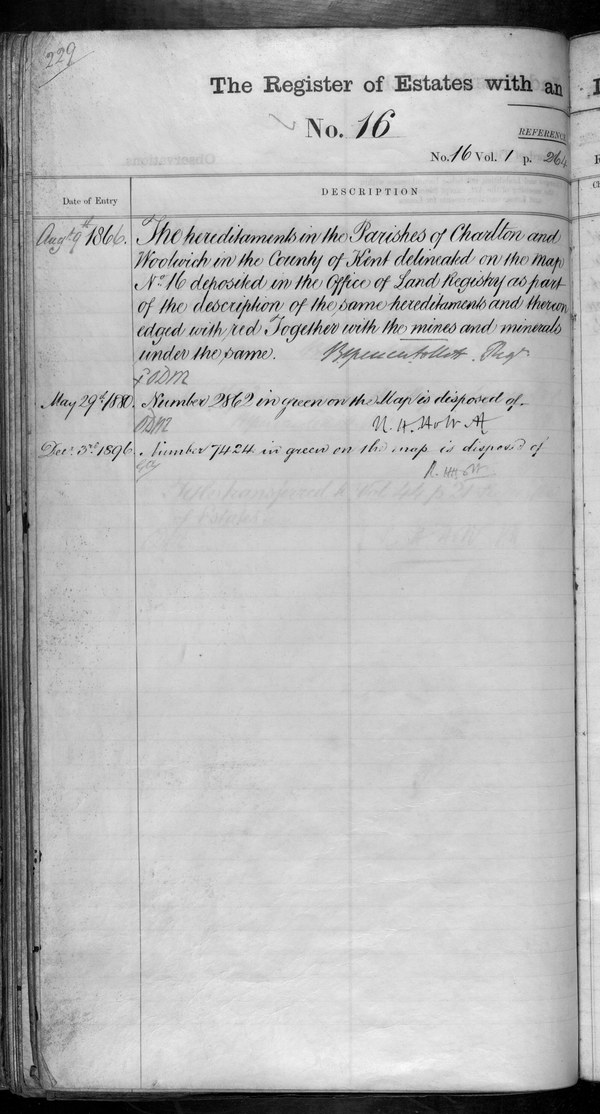 229
The Register of Estates with an
No. 16
REFERENCE
No. 16 Vol. 1 p. 264
Date of Entry
DESCRIPTION
Augt 9th 1866. The hereditaments in the Parishes of Charlton and
Woolwich in the County of Kent delineated on the map
No. 16 deposited in the Office of Land Registry as part
of the description of the same hereditaments and thereon
edged with red Together with the mines and minerals
under the same.
May 29th 1880. Number 2862 in green on the Map is disposed of
Decr. 3rd 1896 Number 7424 in green on the map is disposed of